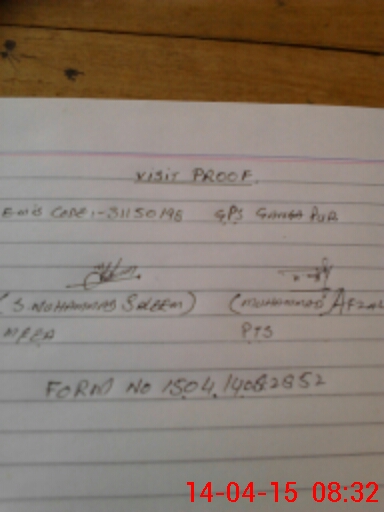 VISIT PROOF.
Emis Code:-31150196 GPS GANGA PUR
(S. MUHAMMAD SALEEM) (MUHAMMAD AFZAL
MEEA PTS
FORM NO 1504.14082852
14-04-15 08:32